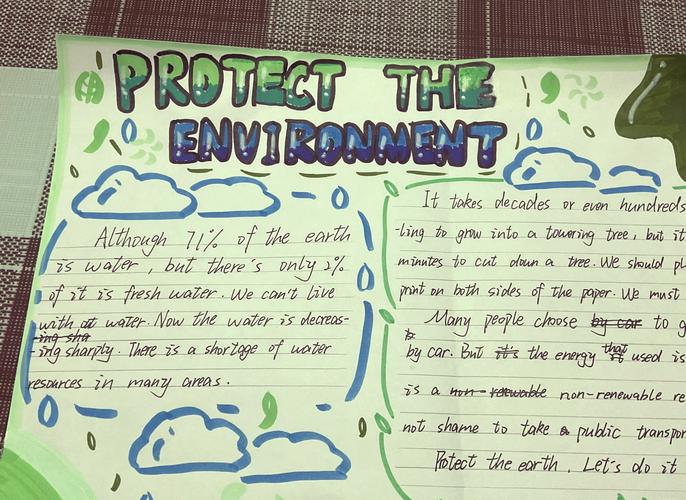 PROTECT THE
ENVIRONMENT
Although 71% of the earth
is water, but there's only 2%
of it is fresh water. We can't live
with out water. Now the water is decreas-
ing sha
-ing sharply. There is a shortage of water
resources in many areas.
It takes decades or even hundreds
-ling to grow into a towering tree, but it
minutes to cut down a tree. We should pl
print on both sides of the paper. We must
Many people choose by car to g
by car. But it's the energy that it used is
is a non-renewable non-renewable re
not shame to take a public transpor
Protect the earth. Let's do it